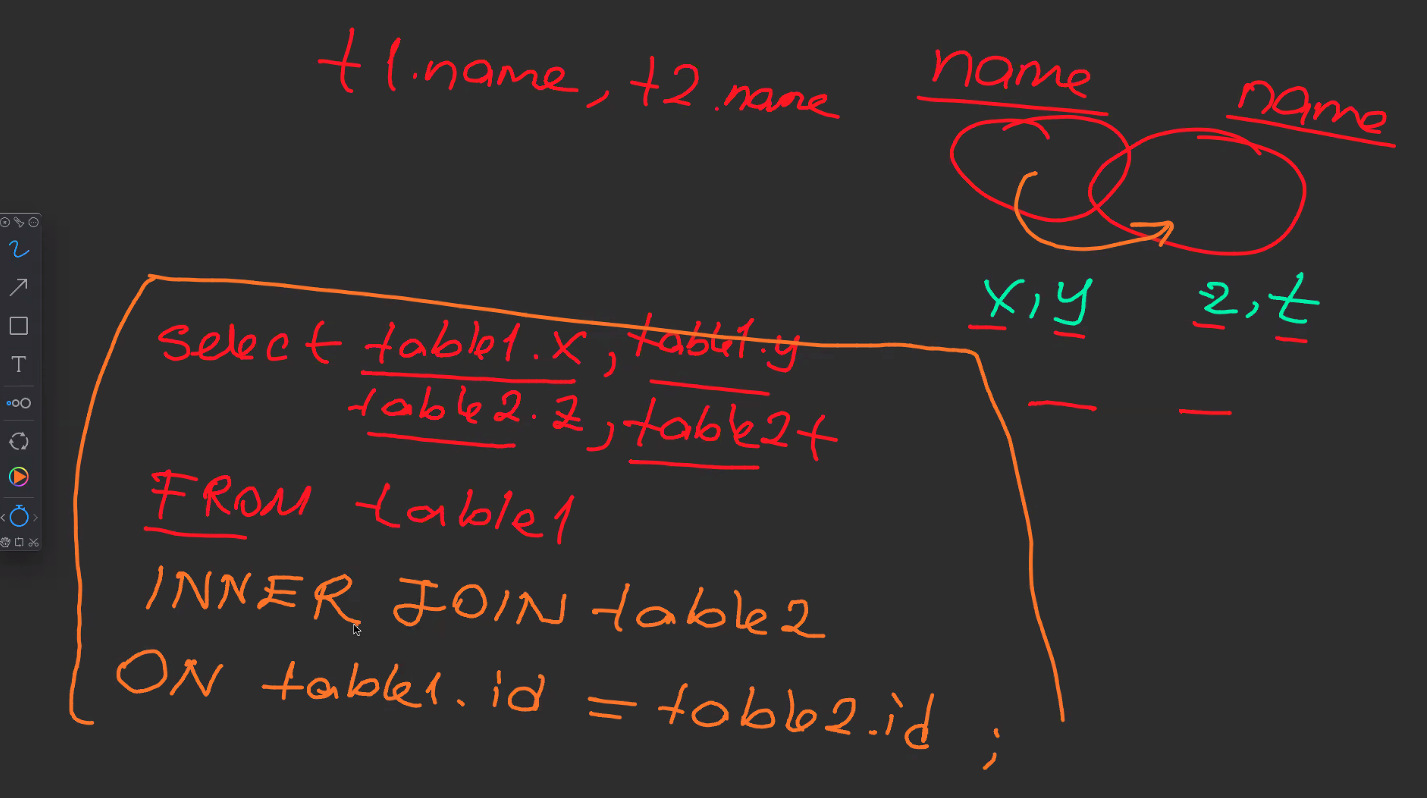 t1.name, t2.name
name
name
x, y
z, t
Select table1.x, table1.y
table2.z, table2t
FROM table1
INNER JOIN table2
ON table1.id = table2.id ;
T